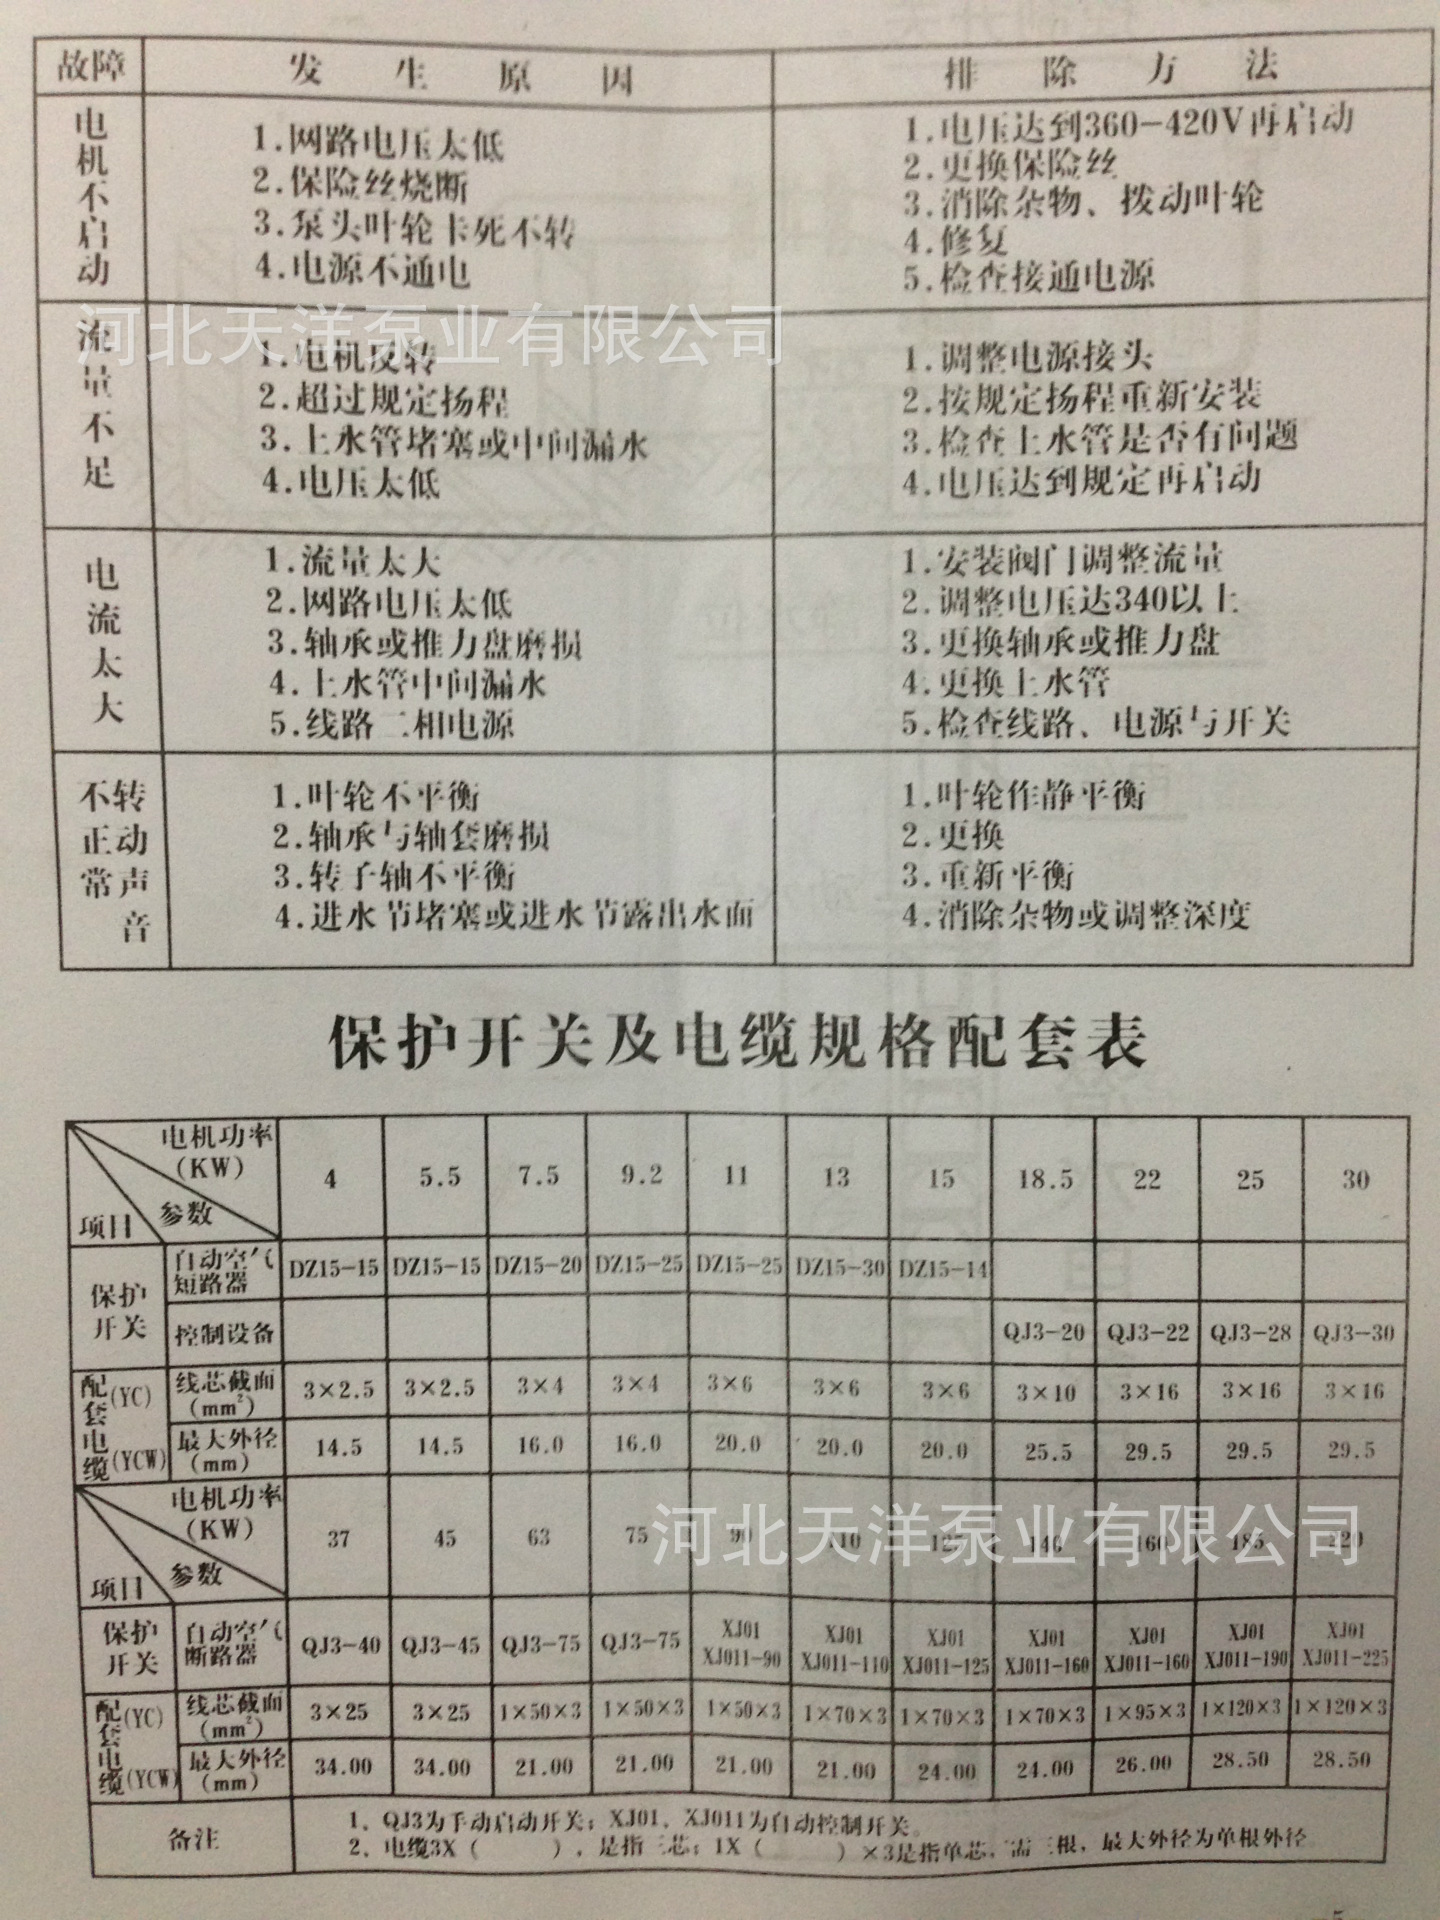 故障 发生原因 排除方法
电机不启动
1.网路电压太低
2.保险丝烧断
3.泵头叶轮卡死不转
4.电源不通电
1.电压达到360-420V再启动
2.更换保险丝
3.消除杂物、拨动叶轮
4.修复
5.检查接通电源
河北天洋泵业有限公司
流量不足
1.电机反转
2.超过规定扬程
3.上水管堵塞或中间漏水
4.电压太低
1.调整电源接头
2.按规定扬程重新安装
3.检查上水管是否有问题
4.电压达到规定再启动
电流太大
1.流量太大
2.网路电压太低
3.轴承或推力盘磨损
4.上水管中间漏水
5.线路二相电源
1.安装阀门调整流量
2.调整电压达340以上
3.更换轴承或推力盘
4.更换上水管
5.检查线路、电源与开关
不转
正动
常声
音
1.叶轮不平衡
2.轴承与轴套磨损
3.转子轴不平衡
4.进水节堵塞或进水节露出水面
1.叶轮作静平衡
2.更换
3.重新平衡
4.消除杂物或调整深度
保护开关及电缆规格配套表
电机功率
(KW)
参数
项目
4 5.5 7.5 9.2 11 13 15 18.5 22 25 30
保护开关
自动空气
短路器
DZ15-15 DZ15-15 DZ15-20 DZ15-25 DZ15-25 DZ15-30 DZ15-14
控制设备
QJ3-20 QJ3-22 QJ3-28 QJ3-30
配套电缆
(YC)
(YCW)
线芯截面
(mm²)
3×2.5 3×2.5 3×4 3×4 3×6 3×6 3×6 3×10 3×16 3×16 3×16
最大外径
(mm)
14.5 14.5 16.0 16.0 20.0 20.0 20.0 25.5 29.5 29.5 29.5
电机功率
(KW)
参数
项目
37 45 63 75 90 110 125 140 160 185 220
河北天洋泵业有限公司
保护开关
自动空气
断路器
QJ3-40 QJ3-45 QJ3-75 QJ3-75 XJ01 XJ01 XJ01 XJ01 XJ01 XJ01 XJ01
XJ011-90 XJ011-110 XJ011-125 XJ011-160 XJ011-160 XJ011-190 XJ011-225
配套电缆
(YC)
(YCW)
线芯截面
(mm²)
3×25 3×25 1×50×3 1×50×3 1×50×3 1×70×3 1×70×3 1×70×3 1×95×3 1×120×3 1×120×3
最大外径
(mm)
34.00 34.00 21.00 21.00 21.00 21.00 24.00 24.00 26.00 28.50 28.50
备注
1、QJ3为手动启动开关；XJ01、XJ011为自动控制开关。
2、电缆3X（ ），是指三芯；1X（ ）×3是指单芯，需三根，最大外径为单根外径